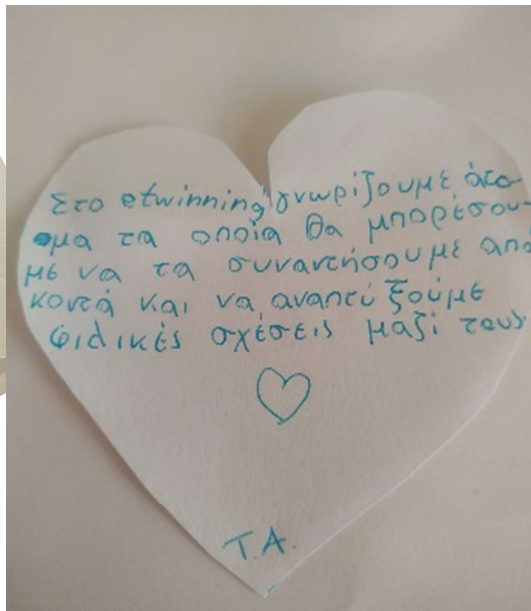 Στο etwinning γνωρίζουμε άτο-
μα τα οποία θα μπορέσου-
με να τα συναντήσουμε από
κοντά και να αναπτύξουμε
φιλικές σχέσεις μαζί τους
T.A.